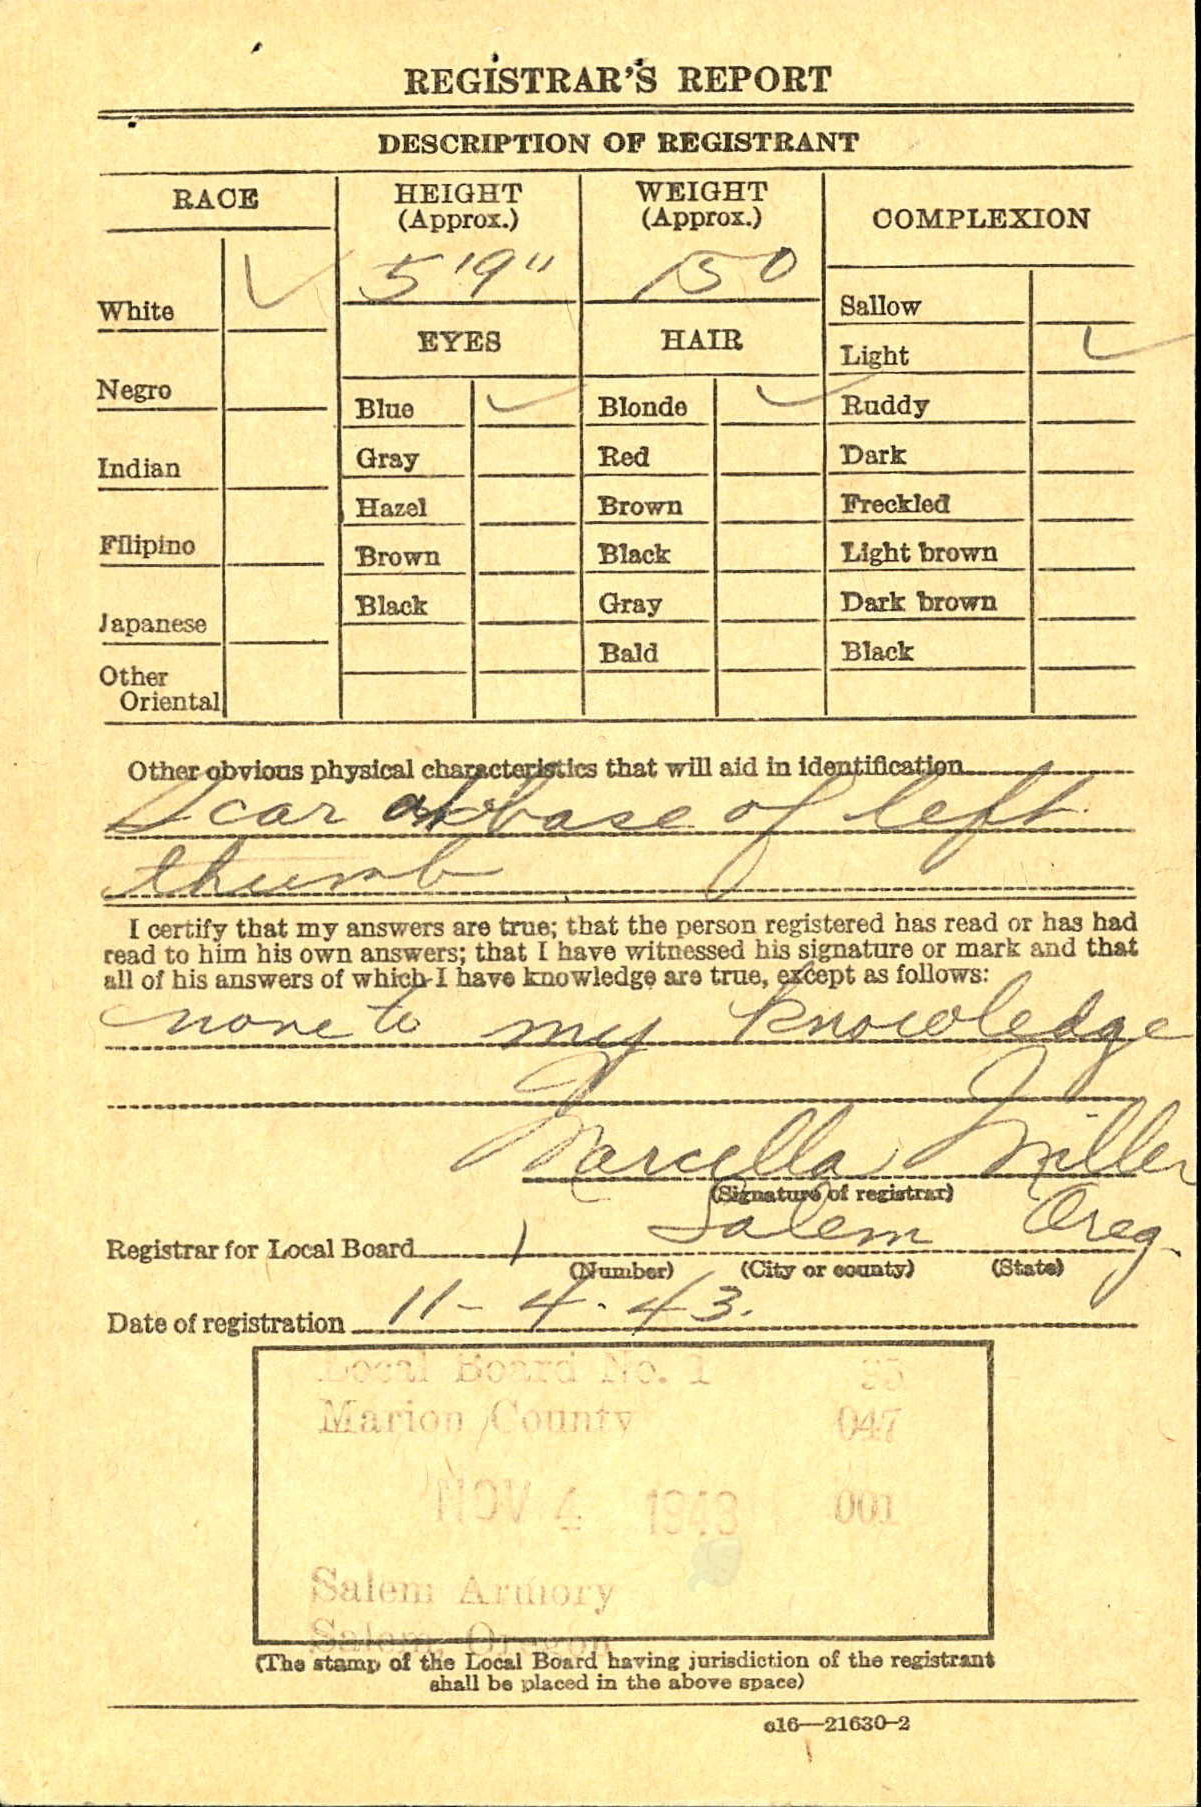 REGISTRAR'S REPORT
DESCRIPTION OF REGISTRANT
RACE
HEIGHT
(Approx.)
WEIGHT
(Approx.)
COMPLEXION
5'9"
150
White
EYES
HAIR
Sallow
Light
Negro
Blue
Blonde
Ruddy
Indian
Gray
Red
Dark
Hazel
Brown
Freckled
Filipino
Brown
Black
Light brown
Japanese
Black
Gray
Dark brown
Other
Oriental
Bald
Black
Other obvious physical characteristics that will aid in identification
Scar at base of left
thumb
I certify that my answers are true; that the person registered has read or has had
read to him his own answers; that I have witnessed his signature or mark and that
all of his answers of which I have knowledge are true, except as follows:
none to my knowledge
Marcella Miller
(Signature of registrar)
Registrar for Local Board 1 Salem Oreg.
(Number) (City or county) (State)
Date of registration 11-4-43.
Local Board No. 1 95
Marion County 047
NOV 4 1943 001
Salem Armory
Salem, Oregon
(The stamp of the Local Board having jurisdiction of the registrant
shall be placed in the above space)
c16—21630-2